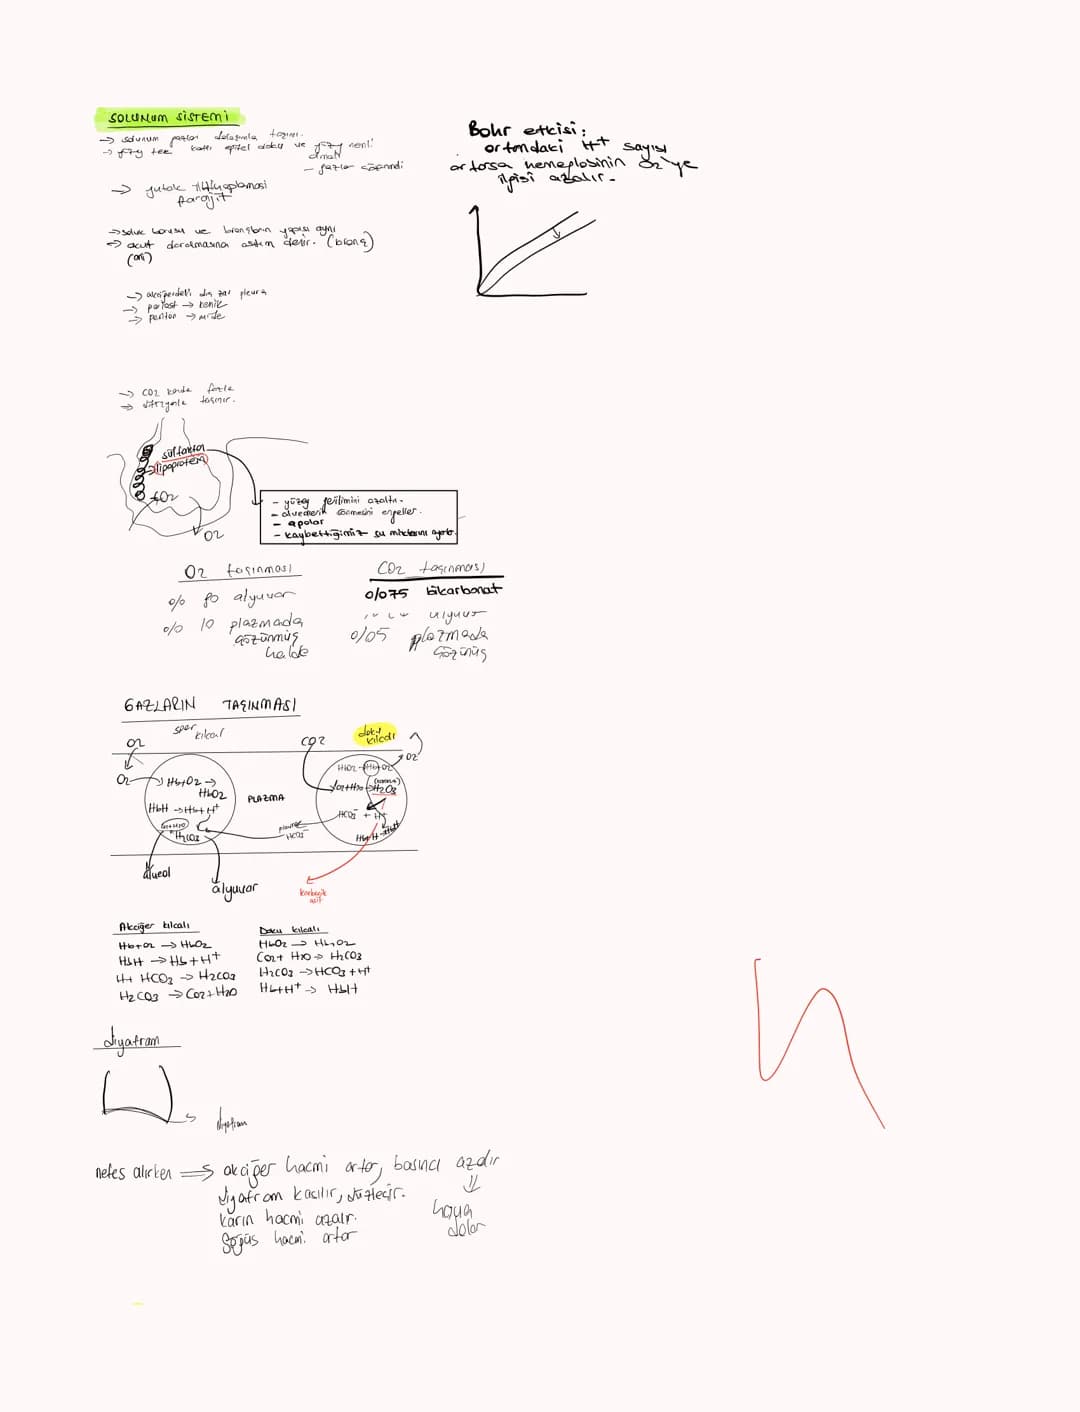 SOLUNUM SİSTEMİ
→ solunum gazları dolaşımla taşınır.
→ tek katlı epitel doku ve yüzey nemli olmalı
- gazlar çözündü
→ yutak
farajit
→ soluk borusu ve bronşların yapısı aynı
→ acut daralmasına astım denir. (bronş)
(ani)
→ akciğerdeki dış zar pleura
→ periost → kemik
→ periton → mide
→ CO2 kanda fazla
→ difüzyonla taşınır.
sülfaktan
lipoprotein
O2
- yüzey gerilimini azaltır.
- sönmesini engeller.
- apolar
- kaybettiğimiz su miktarını
O2 taşınması
% 90 alyuvar
% 10 plazmada
çözünmüş
halde
CO2 taşınması
%75 bikarbonat
alyuvar
%5 plazmada
çözünüş
Bohr etkisi:
ortamdaki H+ sayısı
artarsa hemeglobinin O2'ye
ilgisi azalır.
GAZLARIN TAŞINMASI
kılcal
O2
CO2
doku
kılcalı
O2
O2
Hb+O2 →
HbO2
HbH → Hb+H+
H2CO3
PLAZMA
HCO3-
H2CO3
HCO3- + H+
alveol
alyuvar
karbonik
asit
Akciğer kılcalı
Hb+O2 → HbO2
HbH → Hb+H+
H+ HCO3 → H2CO3
H2CO3 → CO2+H2O
Doku kılcalı
HbO2 → Hb+O2
CO2+ H2O → H2CO3
H2CO3 → HCO3 + H+
Hb+H+ → HbH
diyafram
diyafram
nefes alırken ⇒ akciğer hacmi artar, basıncı azdır
diyafram kasılır, düzleşir.
karın hacmi azalır.
göğüs hacmi artar
hava
dolar